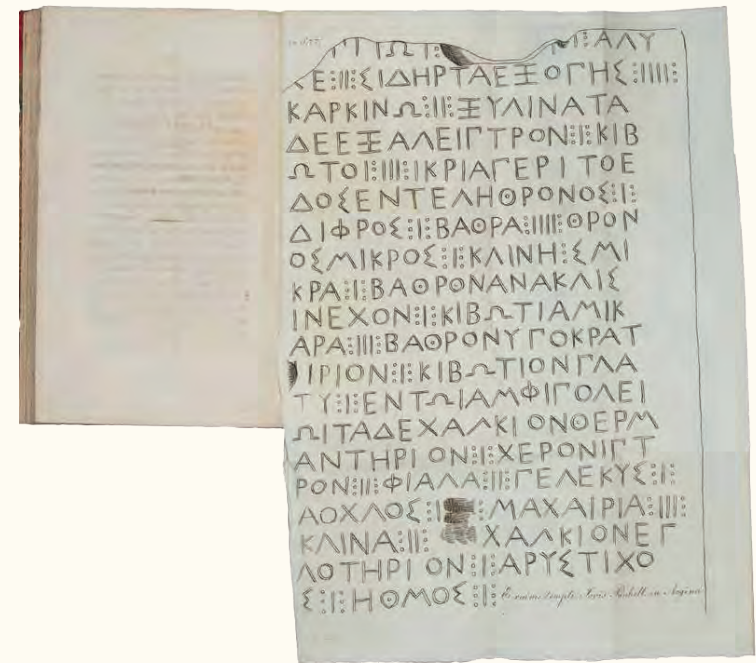 ΤΙΩΤ⁝ ⁝ΑΛΥ
ΚΕ⁝ΙΙ⁝ΣΙΔΗΡΤΑΕΞΟΠΗΣ⁝ΙΙΙΙ⁝
ΚΑΡΚΙΝΩ⁝ΙΙ⁝ΞΥΛΙΝΑΤΑ
ΔΕΕΞΑΛΕΙΠΤΡΟΝ⁝Ι⁝ΚΙΒ
ΩΤΟΙ⁝ΙΙΙ⁝ΙΚΡΙΑΠΕΡΙΤΟΕ
ΔΟΣΕΝΤΕΛΗΘΡΟΝΟΣ⁝Ι⁝
ΔΙΦΡΟΣ⁝Ι⁝ΒΑΘΡΑ⁝ΙΙΙΙ⁝ΘΡΟΝ
ΟΣΜΙΚΡΟΣ⁝Ι⁝ΚΛΙΝΗ⁝ΣΜΙ
ΚΡΑ⁝Ι⁝ΒΑΘΡΟΝΑΝΑΚΛΙΣ
ΙΝΕΧΟΝ⁝Ι⁝ΚΙΒΩΤΙΑΜΙΚ
ΑΡΑ⁝ΙΙΙ⁝ΒΑΘΡΟΝΥΠΟΚΡΑΤ
ΙΡΙΟΝ⁝Ι⁝ΚΙΒΩΤΙΟΝΠΛΑ
ΤΥ⁝Ι⁝ΕΝΤΩΙΑΜΦΙΠΟΛΕΙ
ΩΙΤΑΔΕΧΑΛΚΙΟΝΘΕΡΜ
ΑΝΤΗΡΙΟΝ⁝Ι⁝ΧΕΡΟΝΙΠΤ
ΡΟΝ⁝ΙΙ⁝ΦΙΑΛΑ⁝ΙΙ⁝ΠΕΛΕΚΥΣ⁝Ι⁝
ΛΟΧΛΟΣ⁝Ι ⁝ΜΑΧΑΙΡΙΑ⁝ΙΙΙ⁝
ΚΛΙΝΑ⁝ΙΙ⁝ ΧΑΛΚΙΟΝΕΠ
ΛΟΤΗΡΙΟΝ⁝Ι⁝ΑΡΥΣΤΙΧΟ
Σ⁝Ι⁝ΗΟΜΟΣ⁝Ι⁝ E ruinis templi Jovis Panhell. in Aegina